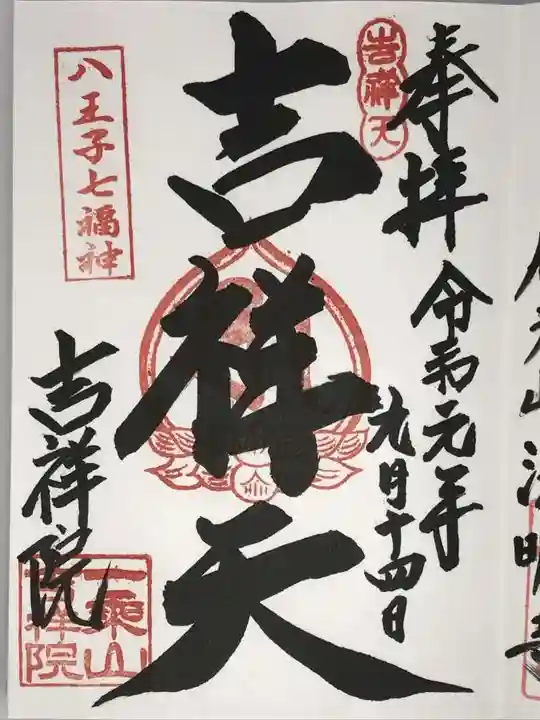 奉拝
令和元年
九月十四日
吉祥天
吉祥天
八王子七福神
吉祥院
一乗山
吉祥院